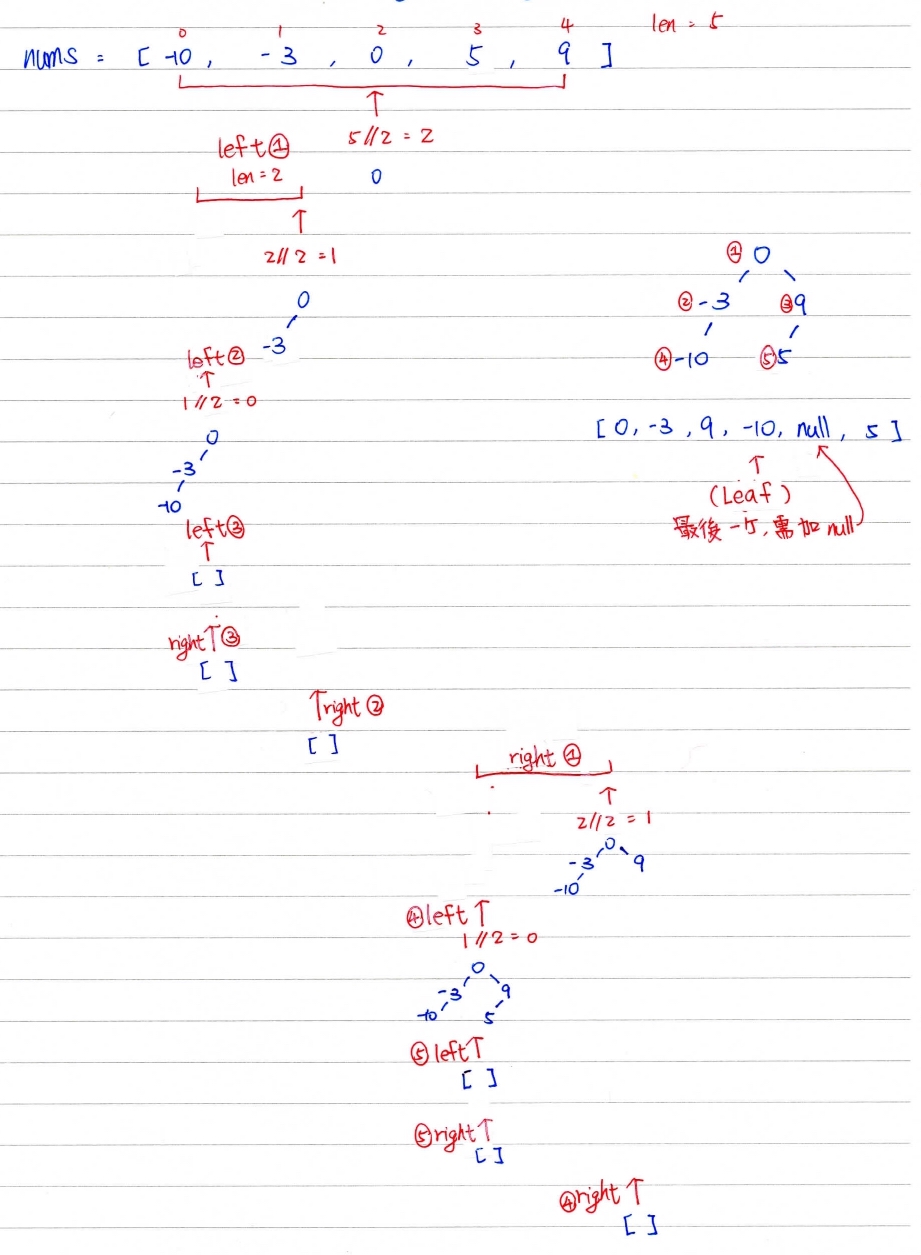 0 1 2 3 4 len = 5
nums = [ -10, -3, 0, 5, 9 ]
↑
left① 5//2 = 2
len = 2 0
↑
2//2 = 1
0
-3
left②
↑
1//2 = 0
0
-3
-10
left③
↑
[ ]
right↑③
[ ]
↑right②
[ ]
① 0
② -3 ③ 9
④ -10 ⑤ 5
[ 0, -3, 9, -10, null, 5 ]
↑
(Leaf)
最後一个, 需加 null
right ①
↑
2//2 = 1
0
-3 9
-10
④left↑
1//2 = 0
0
-3 9
-10 5
⑤left↑
[ ]
⑤right↑
[ ]
④right↑
[ ]